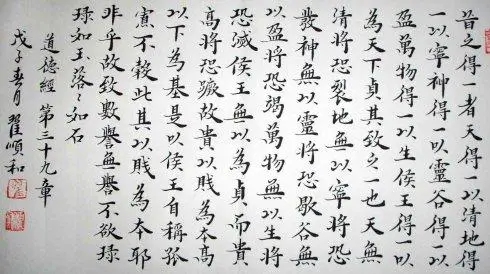 昔之得一者天得一以清地得
一以寧神得一以靈谷得一以
盈萬物得一以生侯王得一以
為天下貞其致之一也天無
清將恐裂地無以寧將恐
發神無以靈將恐歇谷無
以盈將恐竭萬物無以生將
恐滅侯王無以為貞而貴
高將恐蹶故貴以賤為本高
以下為基是以侯王自稱孤
寡不穀此其以賤為本耶
非乎故致數譽無譽不欲琭
琭如玉落々如石
道德經 第三十九章
戊子春月 翟順和